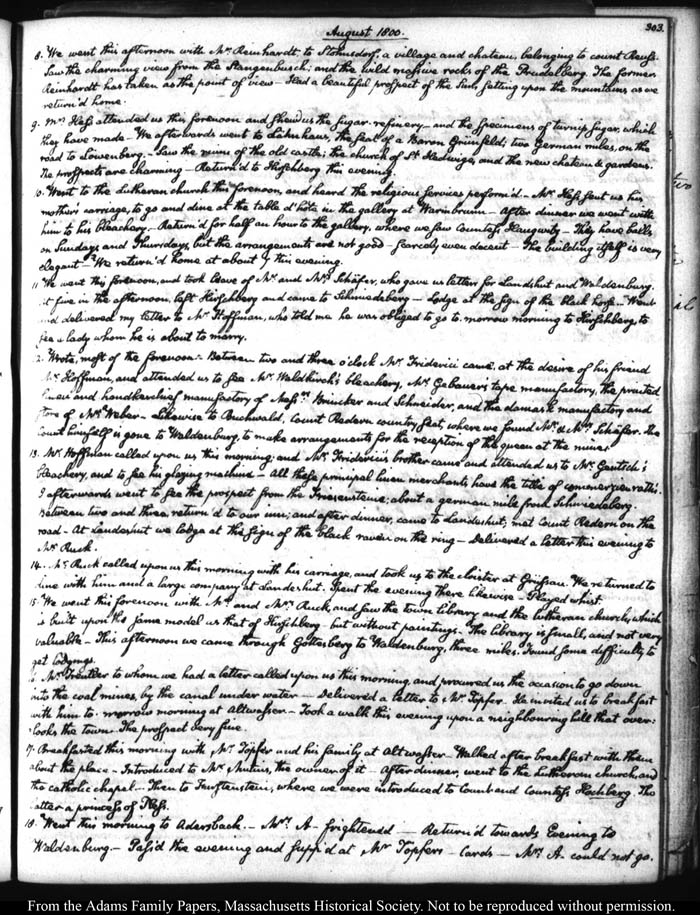 August 1800.
303.
8. We went this afternoon with Mr. Reinhardt to Stohnsdorf, a village and chateau, belonging to count Reuss.
Saw the charming view from the Stangenbusch; and the wild massive rocks of the Prudelberg. The former
Reinhardt has taken as the point of view – Had a beautiful prospect of the Sun, setting upon the mountains as we
return'd home.
9. Mr. Hess attended us this forenoon and shew'd us the sugar-refinery, and the specimens of turnip sugar, which
they have made – We afterwards went to Lähnhaus, the seat of a Baron Grünfeld; two German miles, on the
road to Löwenberg. Saw the ruins of the old castle; the church of St. Hedwige, and the new chateau & gardens.
The prospects are charming – Return'd to Hirschberg this evening.
10. Went to the Lutheran church this forenoon, and heard the religious services perform'd – Mr. Hess sent us his
mother's carriage, to go and dine at the table d'hote in the gallery at Warmbrunn – After dinner we went with
him to his bleachery. Return'd for half an hour to the gallery, where we saw Countess Haugwitz – They have balls
on Sundays and Thursdays, but the arrangements are not good – scarcely even decent – The building itself is very
elegant – We return'd home at about 7 this evening.
11. We went this forenoon, and took leave of Mr. and Mrs. Schäfer, who gave us letters for Landshut and Waldenburg.
At five in the afternoon, left Hirschberg and came to Schmiedeberg – Lodge at the sign of the black horse – Went
and delivered my letter to Mr. Hoffman, who told me he was obliged to go to-morrow morning to Hirschberg, to
see a lady whom he is about to marry.
12. Wrote, most of the forenoon – Between two and three o'clock Mr. Friderici came, at the desire of his friend
Mr. Hoffman, and attended us to see Mr. Waldkirch's bleachery, Mr. Gebauer's tape manufactory, the printed
linen and handkerchief manufactory of Messrs. Brincker and Schneider, and the damask manufactory and
store of Mr. Weber – Likewise to Buchwald, Count Redern country seat, where we found Mr. & Mrs. Schäfer. The
Count himself is gone to Waldenburg, to make arrangements for the reception of the queen at the mines.
13. Mr. Hoffman called upon us this morning; and Mr. Friderici's brother came and attended us to Mr. Gentsch's
bleachery, and to see his glazing machine – All these principal linen merchants have the title of commercien raths.
I afterwards went to see the prospect from the Friesensteine; about a german mile from Schmiedeberg.
Between two and three return'd to our inn; and after dinner, came to Landeshut; met Count Redern on the
road – At Landeshut we lodge at the sign of the black raven on the ring – Delivered a letter this evening to
Mr. Ruck.
14. Mr. Ruck called upon us this morning with his carriage, and took us to the cloister at Grüssau. We returned to
dine with him and a large company at Landeshut. Spent the evening there likewise – Played whist.
15. We went this forenoon with Mr. and Mrs. Ruck, and saw the town library and the Lutheran church, which
is built upon the same model as that of Hirschberg – but without paintings. The Library is small, and not very
valuable – This afternoon we came through Gottesberg to Waldenburg, three miles. Found some difficulty to
get lodgings.
Mr. Treutler to whom we had a letter called upon us this morning, and procured us the occasion to go down
into the coal mines, by the canal under water – Delivered a letter to Mr. Töpfer. He invited us to breakfast
with him to-morrow morning at Altwasser – Took a walk this evening upon a neighbouring hill that over-
looks the town. The prospect very fine.
17. Breakfasted this morning with Mr. Töpfer and his family at Altwasser. Walked after breakfast with them
about the place – Introduced to Mr. Mutius, the owner of it – After dinner, went to the Lutheran church, and
the catholic chapel – Then to Furstenstein, where we were introduced to Count and Countess Hochberg. The
latter a princess of Pless.
18. Went this morning to Adersback – Mrs. A – frightened – Return'd towards Evening to
Waldenburg – Pass'd the evening and supp'd at Mr. Topfers – Cards – Mrs. A – could not go.
From the Adams Family Papers, Massachusetts Historical Society. Not to be reproduced without permission.